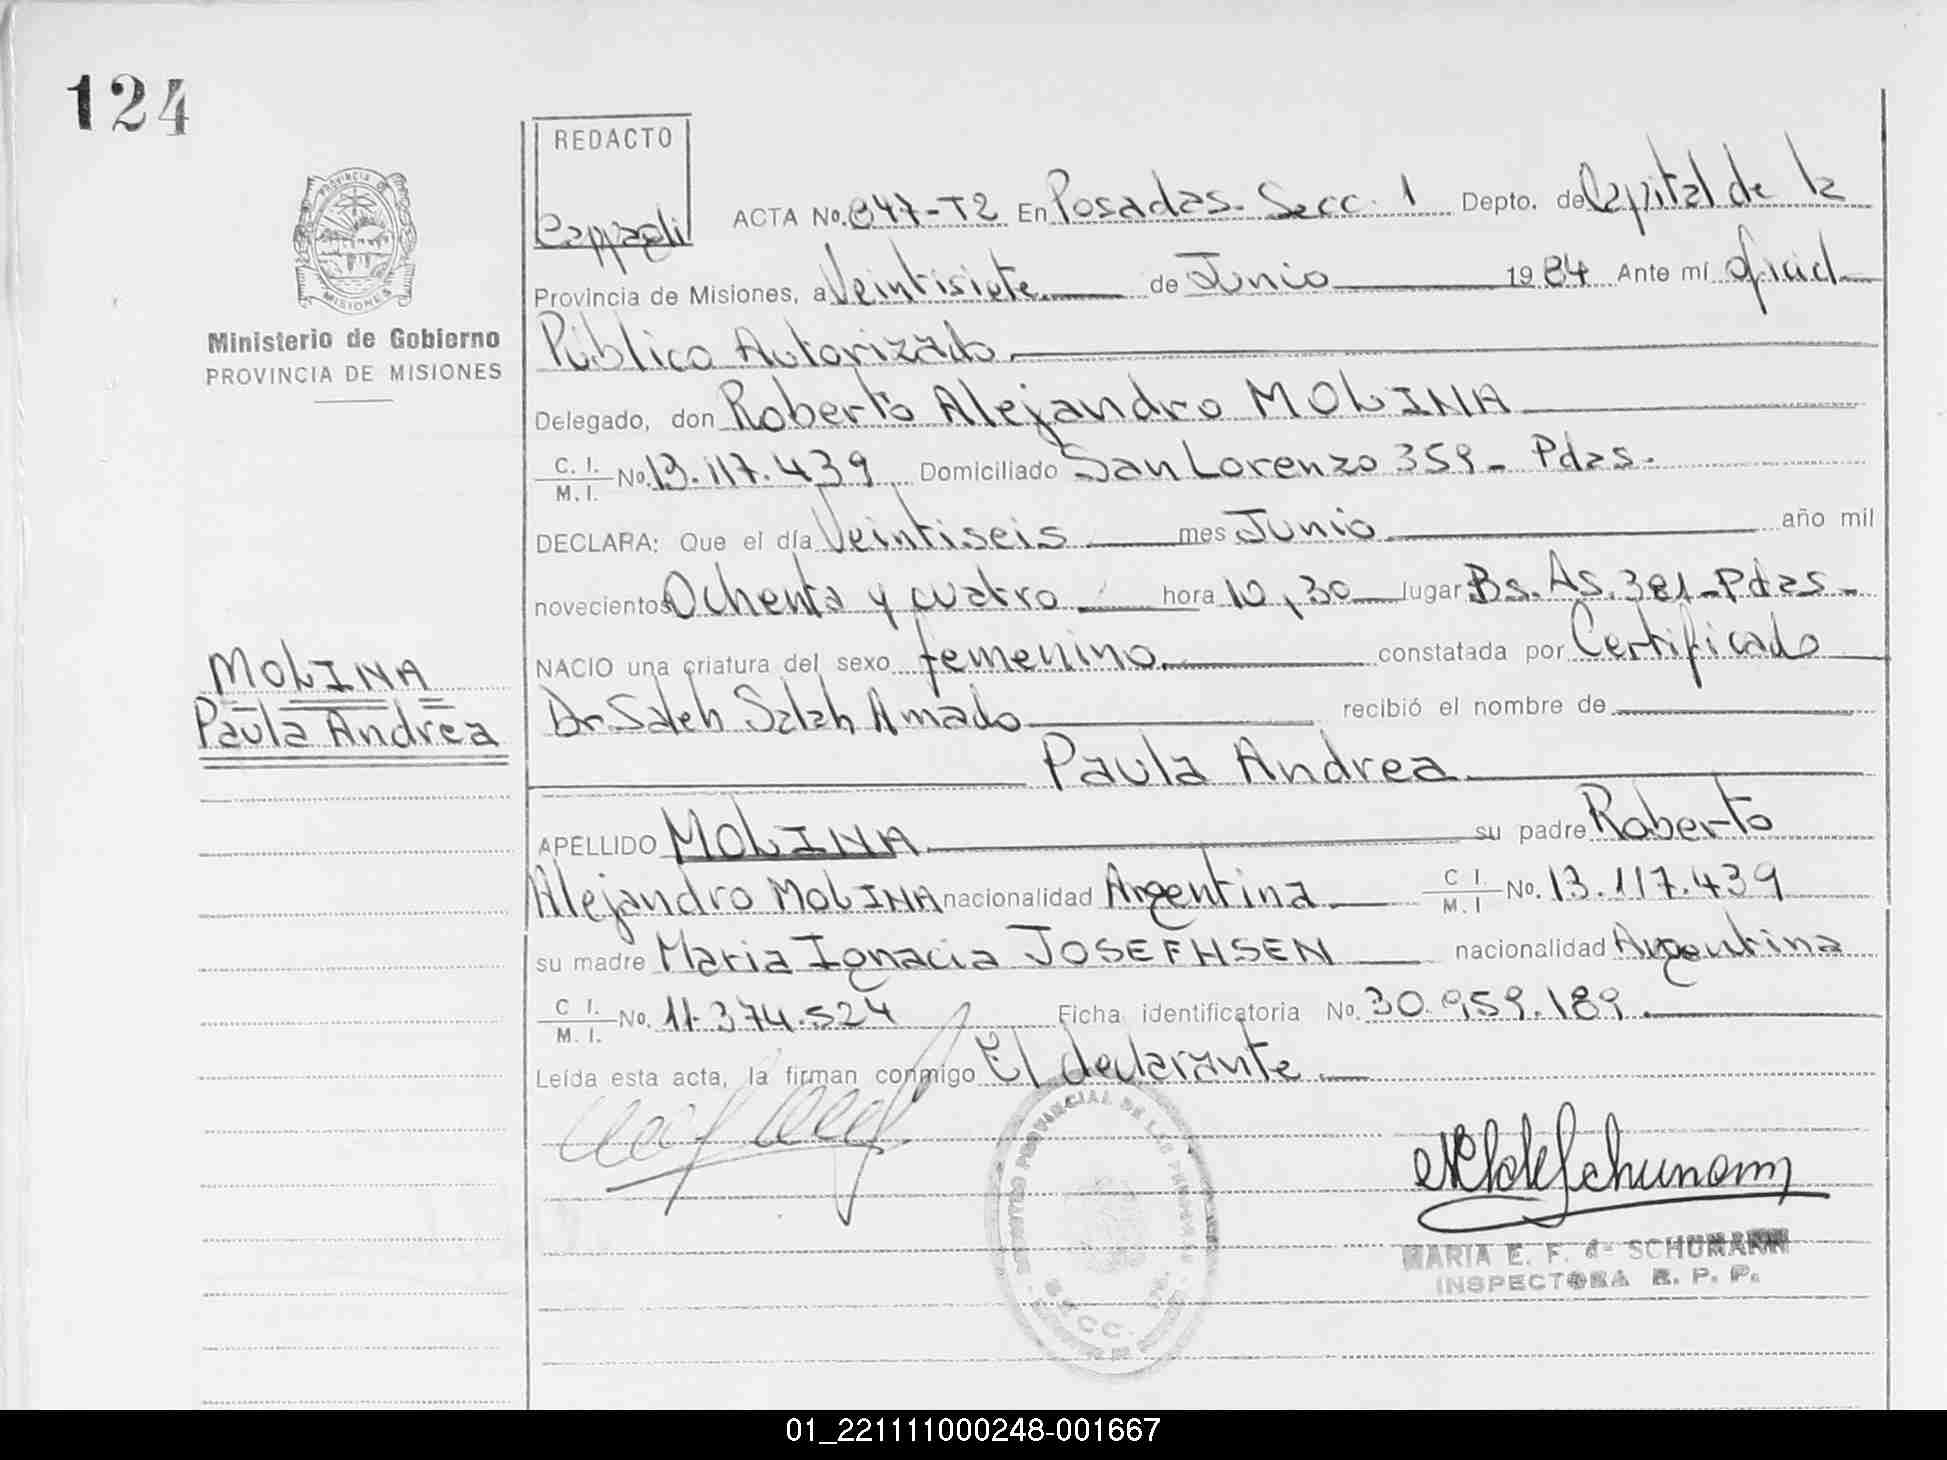 124
REDACTO
Cappagli
PROVINCIA DE
MISIONES
Ministerio de Gobierno
PROVINCIA DE MISIONES
ACTA No. 847-T2 En Posadas- Secc. 1 Depto. de Capital de la
Provincia de Misiones, a Veintisiete de Junio 1984 Ante mí Oficial
Público Autorizado
Delegado, don Roberto Alejandro MOLINA
C. I.
M. I. No. 13.117.439 Domiciliado San Lorenzo 359- Pdas.
DECLARA: Que el día Veintiseis mes Junio año mil
novecientos Ochenta y cuatro hora 10,30 lugar Bs. As. 381-Pdas-
NACIO una criatura del sexo femenino. constatada por Certificado
Dr. Saleh Salah Amado recibió el nombre de
Paula Andrea
MOLINA
Paula Andrea
APELLIDO MOLINA su padre Roberto
Alejandro MOLINA nacionalidad Argentina C I. M. I No. 13.117.439
su madre Maria Ignacia JOSEFHSEN nacionalidad Argentina
C I. M. I. No. 11.374.524 Ficha identificatoria No. 30.959.189.
Leída esta acta, la firman conmigo El declarante.
MARIA E. F. de SCHUMANN
INSPECTORA R. P. P.
01_221111000248-001667